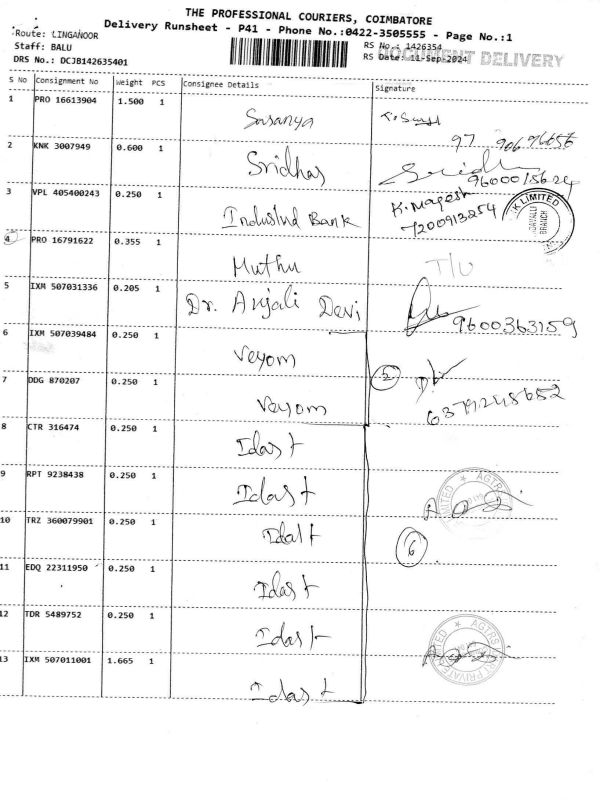 THE PROFESSIONAL COURIERS, COIMBATORE
Delivery Runsheet - P41 - Phone No.:0422-3505555 - Page No.:1
Route: LINGANOOR
Staff: BALU
DRS No.: DCJB142635401
RS No.: 1426354
RS Date: 11-Sep-2024
DOCUMENT DELIVERY
S No Consignment No Weight PCS Consignee Details Signature
1 PRO 16613904 1.500 1 Sasanya
2 KNK 3007949 0.600 1 Sridhas
3 VPL 405400243 0.250 1 IndusInd Bank K. Magesh
7200913254
K LIMITED
BRANCH
4 PRO 16791622 0.355 1 Muthu T/U
5 IXM 507031336 0.205 1 Dr. Anjali Devi 9600363159
6 IXM 507039484 0.250 1 Veyom
7 DDG 870207 0.250 1 Veyom 2
6379245652
8 CTR 316474 0.250 1 Idast
9 RPT 9238438 0.250 1 Idast
10 TRZ 360079901 0.250 1 Idalt 6
11 EDQ 22311950 0.250 1 Idast
12 TDR 5489752 0.250 1 Idast
13 IXM 507011001 1.665 1 Idast